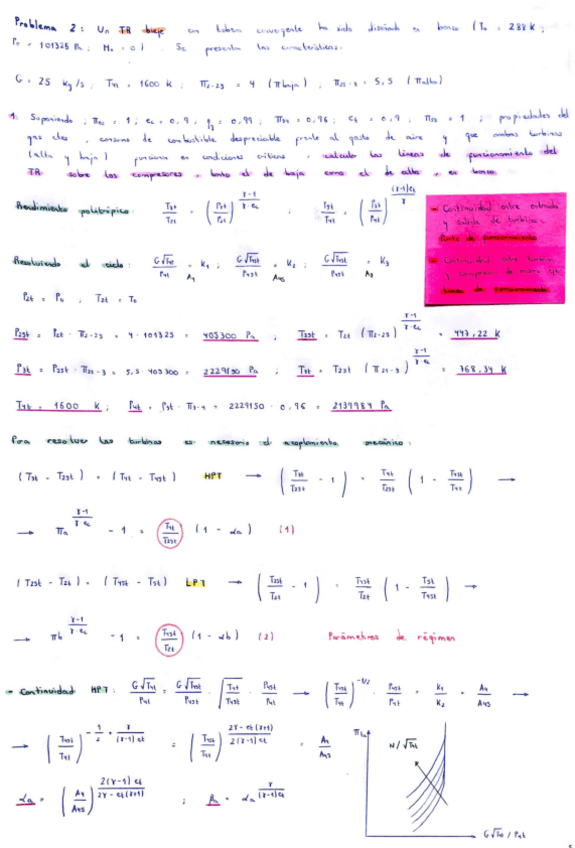 Problema 2: Un TR bieje con tobera convergente ha sido diseñado en banco (T₀ = 288 K;
P₀ = 101325 Pa; M₀ = 0). Se presentan las características:
G = 25 kg/s; T4t = 1600 K; π2-25 = 4 (πbaja); π25-3 = 5,5 (πalto)
1. Suponiendo; π02 = 1; ec = 0,9; = 0,99; π34 = 0,96; et = 0,9; = 1; propiedades del
gas ctes, consumo de combustible despreciable frente al gasto de aire y que ambas turbinas
(alta y baja) funcionan en condiciones críticas, calcular las líneas de funcionamiento del
TR sobre los compresores, tanto el de baja como el de alta, en banco.
Rendimiento politrópico: T3t/T2t = (P3t/P2t)^((γ-1)/(γ·ec)) ;
- Continuidad entre entrada
y salida de turbina:
Punto de funcionamiento
- Continuidad entre turbina
y compresor de mismo eje:
línea de funcionamiento
Resolviendo el ciclo: G√T4t/P4t A4 = K1 ; G√T45t/P45t A45 = K2 ; = K3
P2t = P₀ , T2t = T₀
P25t = P2t · π2-25 = 4 · 101325 = 405300 Pa ; T25t = T2t (π2-25)^((γ-1)/(γ·ec)) = 447,22 K
P3t = P25t · π25-3 = 5,5 · 405300 = 2229150 Pa ; T3t = T25t (π25-3)^((γ-1)/(γ·ec)) = 768,34 K
T4t = 1600 K ; P4t = P3t · π3-4 = 2229150 · 0,96 = 2139984 Pa
Para resolver las turbinas es necesario el acoplamiento mecánico:
(T3t - T25t) = (T4t - T45t) HPT → (T3t/T25t - 1) = T4t/T25t (1 - T45t/T4t) →
→ πa^((γ-1)/(γ·ec)) - 1 = T4t/T25t (1 - αa) (1)
(T25t - T2t) = (T45t - T5t) LPT → (T25t/T2t - 1) = T45t/T2t (1 - T5t/T45t) →
→ πb^((γ-1)/(γ·ec)) - 1 = T45t/T2t (1 - αb) (2) Parámetros de régimen
- Continuidad HPT: G√T4t/P4t = G√T45t/P45t · √(T4t/T45t) · P45t/P4t → (T45t/T4t)^(-1/2) · P45t/P4t = K1/K2 = A4/A45 →
→ (T45t/T4t)^(-1/2 + γ/((γ-1)et)) = (T45t/T4t)^((2γ - et(γ-1))/(2(γ-1)et)) = A4/A45
αa = (A4/A45)^(2(γ-1)et/(2γ - et(γ-1))) ; βa = αa^(γ/((γ-1)et))
N/√T2t
G√T2t / P2t